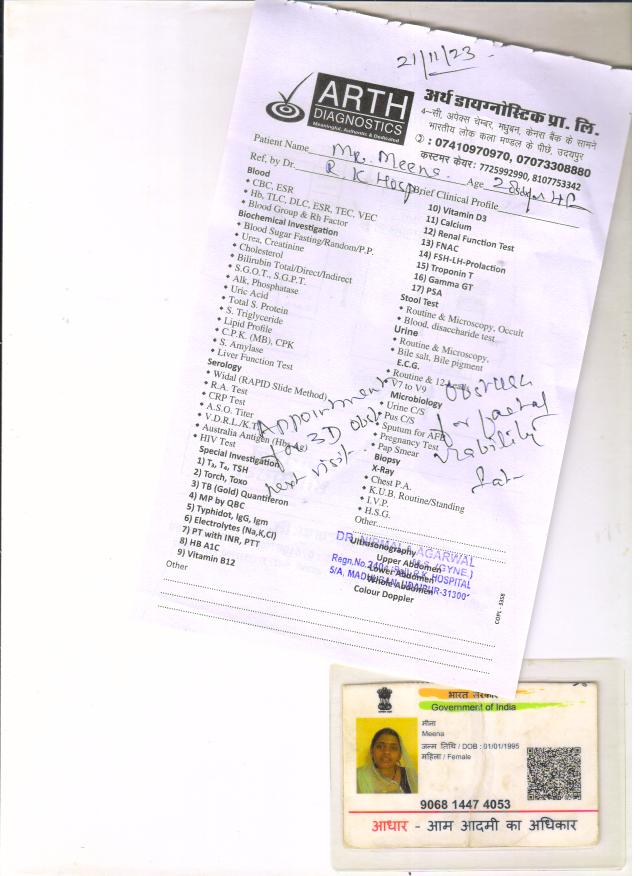 21/11/23
ARTH
DIAGNOSTICS
Meaningful, Authentic & Dedicated
अर्थ डायग्नोस्टिक प्रा. लि.
4-सी, अपेक्स चेम्बर, मधुबन, केनरा बैंक के सामने
भारतीय लोक कला मण्डल के पीछे, उदयपुर
: 07410970970, 07073308880
कस्टमर केयर: 7725992990, 8107753342
Patient Name Mr. Meena. Age 28
Ref. by Dr. R. K Hosp Brief Clinical Profile
Blood
CBC, ESR
Hb, TLC, DLC, ESR, TEC, VEC
Blood Group & Rh Factor
Biochemical Investigation
Blood Sugar Fasting/Random/P.P.
Urea, Creatinine
Cholesterol
Bilirubin Total/Direct/Indirect
S.G.O.T., S.G.P.T.
Alk, Phosphatase
Uric Acid
Total S. Protein
S. Triglyceride
Lipid Profile
C.P.K. (MB), CPK
S. Amylase
Liver Function Test
Serology
Widal (RAPID Slide Method)
R.A. Test
CRP Test
A.S.O. Titer
V.D.R.L/K.T
Australia Antigen (Hbs
HIV Test
Special Investigation
1) T₃, T₄, TSH
2) Torch, Toxo
3) TB (Gold) Quantiferon
4) MP by QBC
5) Typhidot, IgG, Igm
6) Electrolytes (Na,K,Cl)
7) PT with INR, PTT
8) HB A1C
9) Vitamin B12
Other
10) Vitamin D3
11) Calcium
12) Renal Function Test
13) FNAC
14) FSH-LH-Prolaction
15) Troponin T
16) Gamma GT
17) PSA
Stool Test
Routine & Microscopy, Occult
Blood, disaccharide test
Urine
Routine & Microscopy,
Bile salt, Bile pigment
E.C.G.
Routine & 12 Leads
V7 to V9
Microbiology
Urine C/S
Pus C/S
Sputum for AFB
Pregnancy Test
Pap Smear
Biopsy
X-Ray
Chest P.A.
K.U.B. Routine/Standing
I.V.P.
H.S.G.
Other
Ultrasonography
Upper Abdomen
Lower Abdomen
Whole Abdomen
Colour Doppler
Appointment
for 3D obst
next visit.
for foetal
viability
DR. NIRMALA AGARWAL
M.S. (GYNE.)
R.K. HOSPITAL
5/A, MADHUBAN, UDAIPUR-31300
COPL - 5358
भारत सरकार
Government of India
मीना
Meena
जन्म तिथि / DOB : 01/01/1995
महिला / Female
9068 1447 4053
आधार - आम आदमी का अधिकार